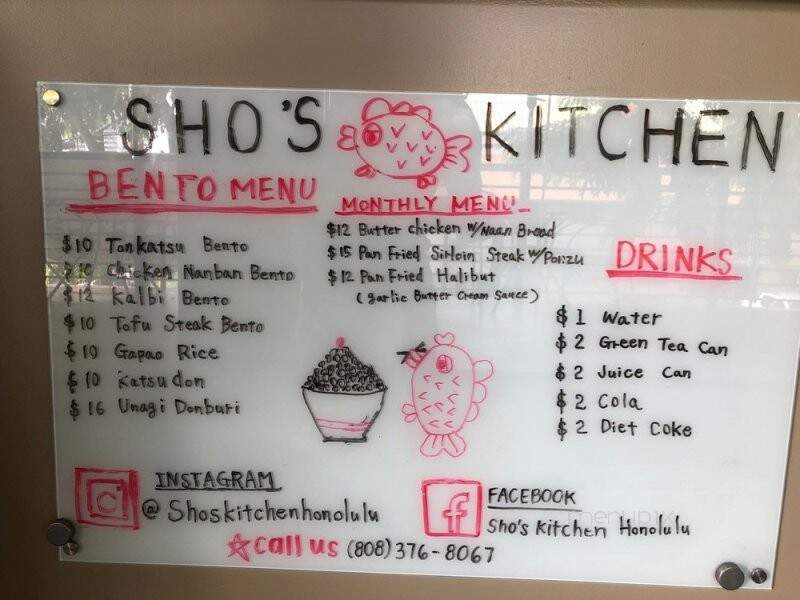 SHO'S KITCHEN
BENTO MENU
$10 Tonkatsu Bento
$10 Chicken Nanban Bento
$12 Kalbi Bento
$10 Tofu Steak Bento
$10 Gapao Rice
$10 Katsudon
$16 Unagi Donburi
MONTHLY MENU
$12 Butter chicken W/Naan Bread
$15 Pan Fried Sirloin Steak W/Ponzu
$12 Pan Fried Halibut
(garlic Butter Cream Sauce)
DRINKS
$1 Water
$2 Green Tea Can
$2 Juice Can
$2 Cola
$2 Diet Coke
INSTAGRAM
@Shoskitchenhonolulu
FACEBOOK
Sho's Kitchen Honolulu
Call us (808)376-8067